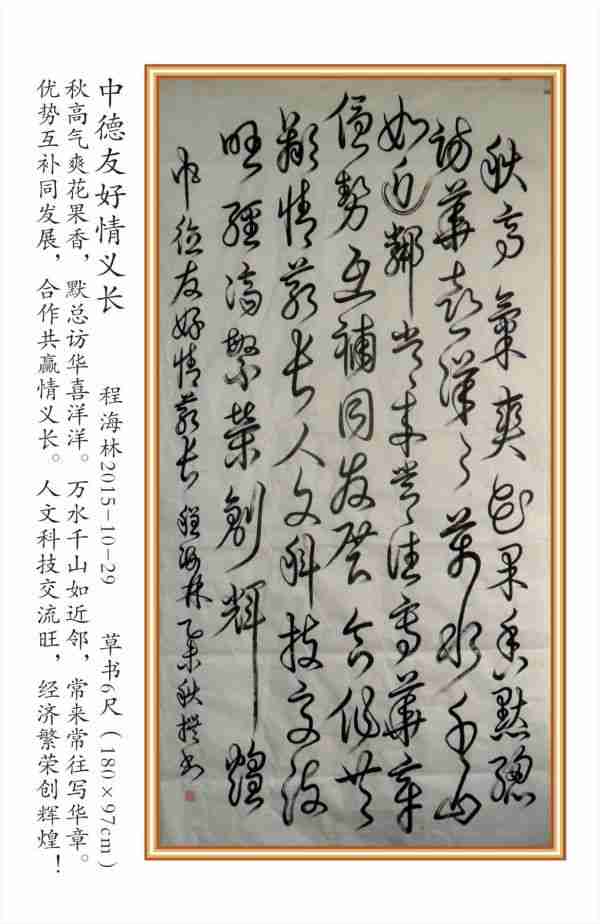 秋高氣爽花果香默總
訪華喜洋々萬水千山
如近鄰常來常往寫華章
優勢互補同發展合作共
贏情義長人文科技交流
旺經濟繁榮創輝煌
中德友好情義長 程海林乙未秋撰书
中德友好情义长 程海林2015-10-29 草书6尺（180×97cm）
秋高气爽花果香，默总访华喜洋洋。万水千山如近邻，常来常往写华章。
优势互补同发展，合作共赢情义长。人文科技交流旺，经济繁荣创辉煌！